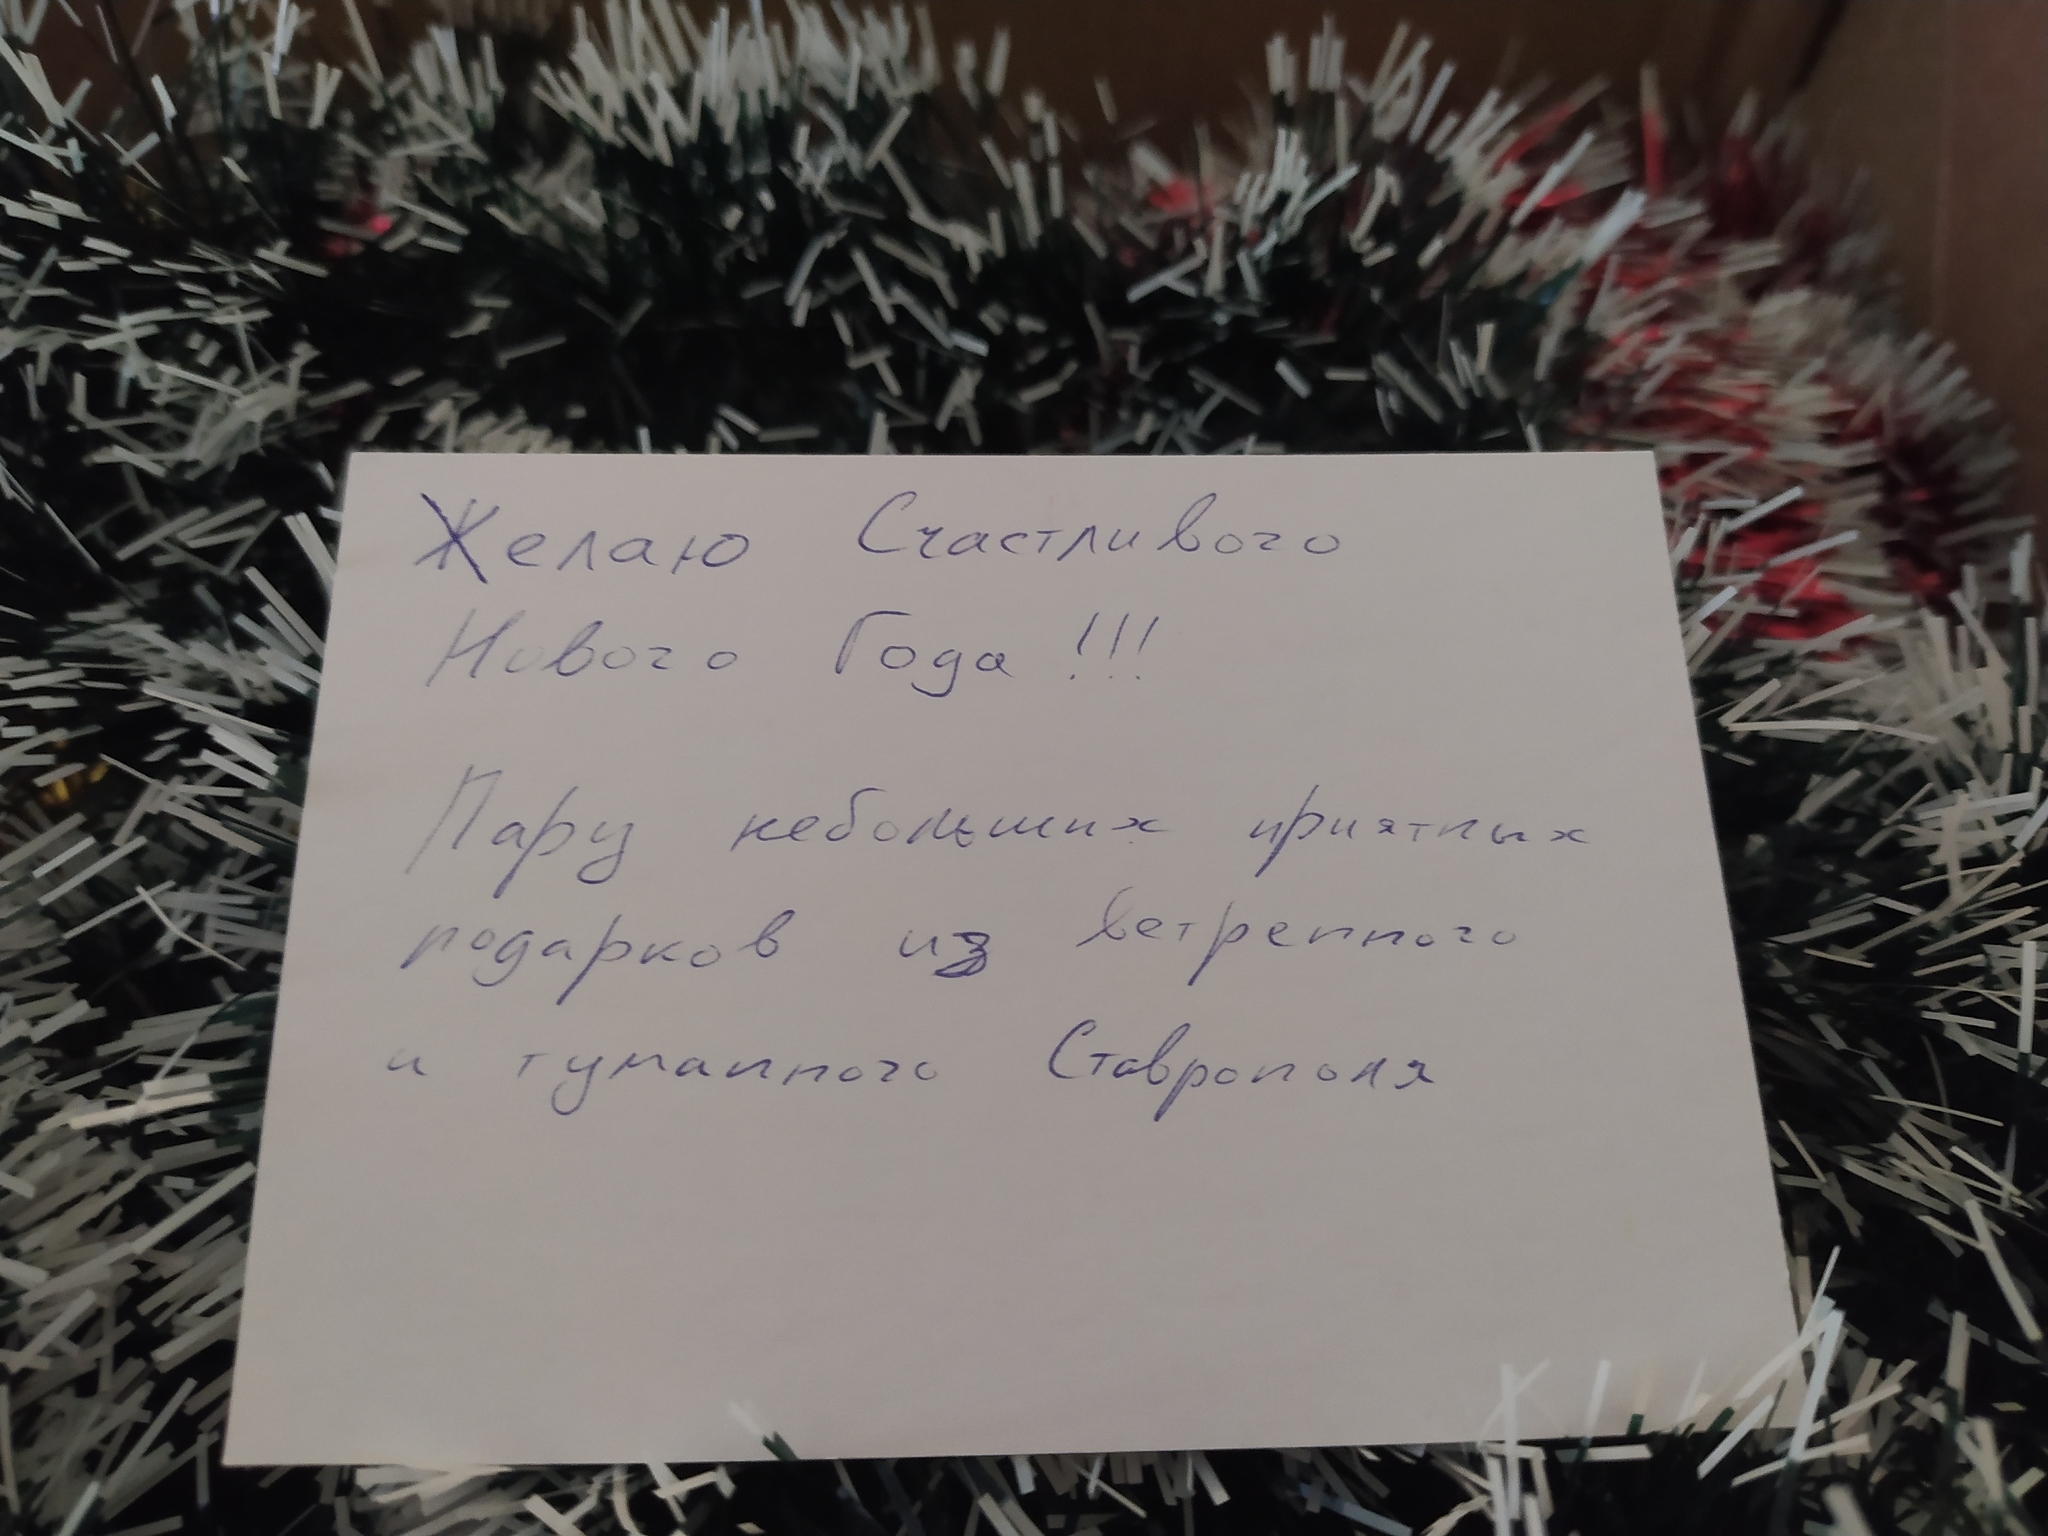 Желаю Счастливого
Нового Года!!!
Пару небольших приятных
подарков из ветренного
и туманного Ставрополя